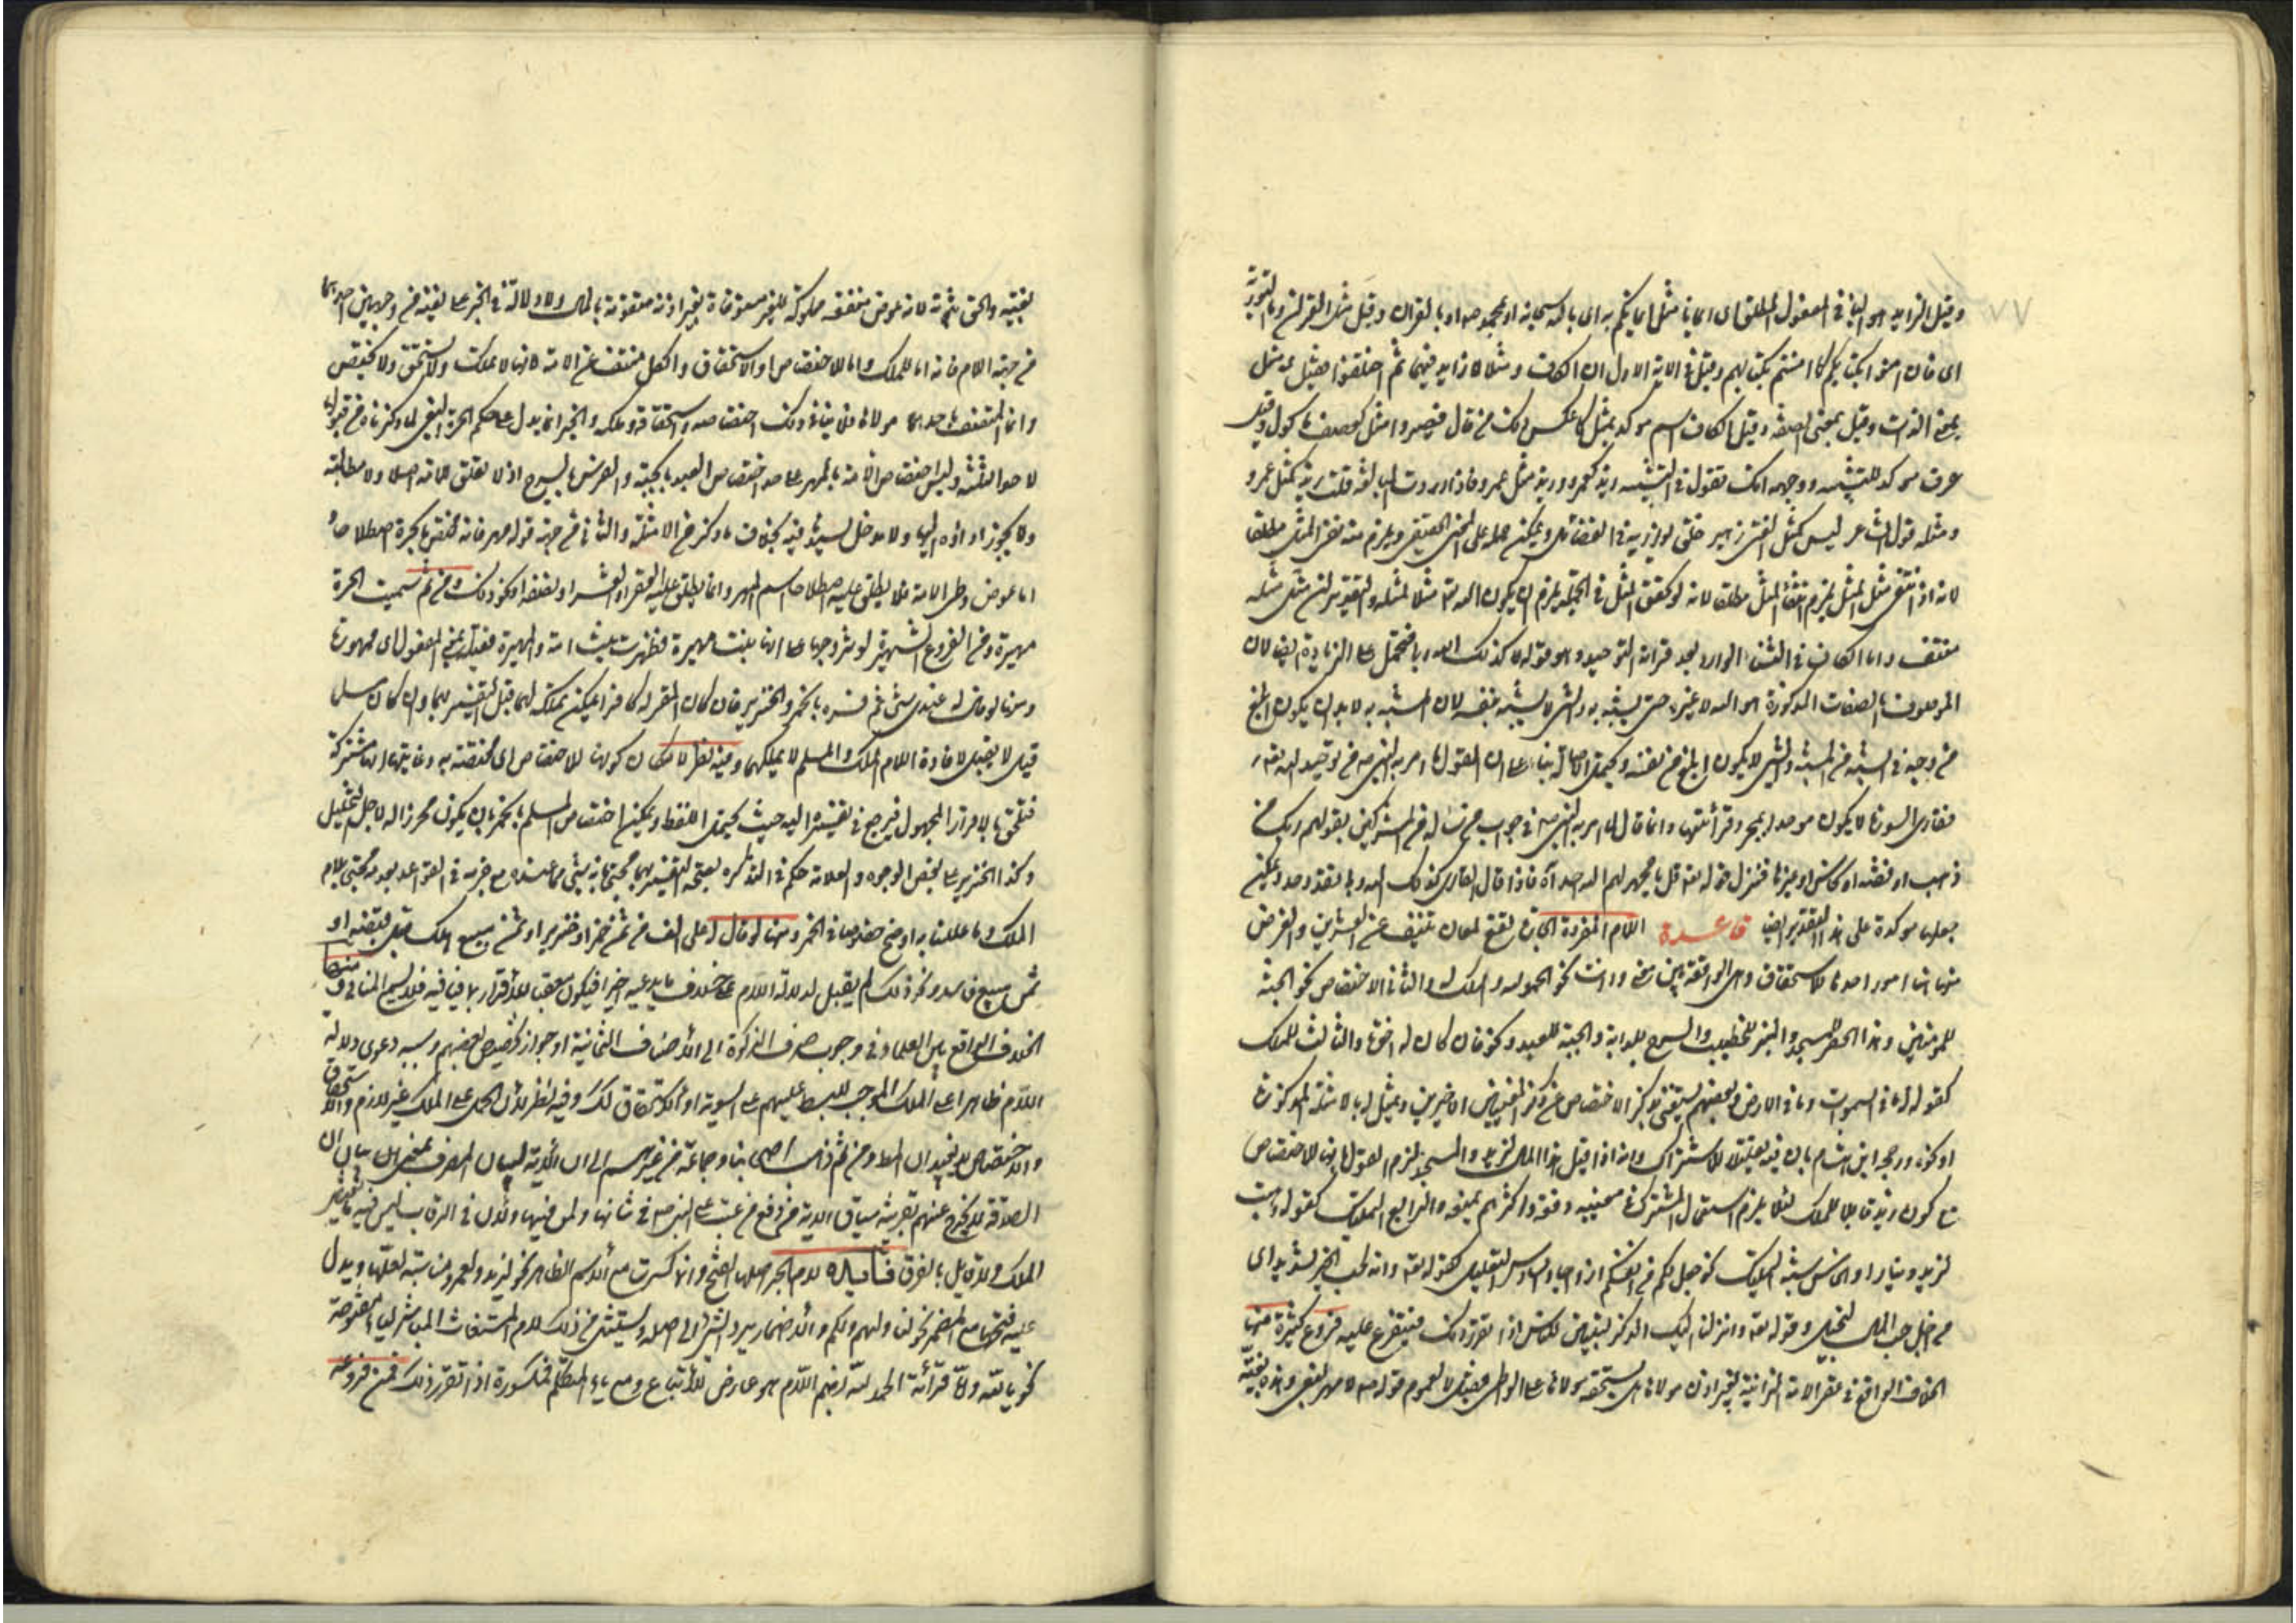 وقيل الزايد هو الباء في المفعول المطلق اى ايمانا مثل ايمانكم به اى بالله سبحانه او بمحمد ص او بالقران وقيل مثل القران وما التورية
اى فان امنوا بكتابكم كما امنتم بكتابهم وقيل في الاية الاولى ان الكاف ومثلا لا زايد فيهما ثم اختلفوا فقيل مثل
بمعنى الذات وقيل بمعنى الصفة وقيل الكاف اسم موكد بمثل كما عكس ذلك من قال فصيروا مثل كعصف ماكول وقيل
حرف موكد للتشبيه ووجهه انك تقول في التشبيه زيد كعمرو وزيد مثل عمرو فاذا اردت المبالغة قلت زيد كمثل عمرو
ومثله قول الشاعر ليس كمثل الفتى زهير خلق يوازيه في الفضائل ويمكن حمله على المعنى الحقيقي ويلزم منه نفى المثل مطلقا
لانه اذا انتفى مثل المثل يلزم انتفاء المثل مطلقا لانه لو تحقق المثل في الجملة يلزم ان يكون الله تعه مثلا لمثله والتقدير ان مثل مثله
منتف واما الكاف في الثناء الوارد بعد قراءة التوحيد وهو قوله كذلك الله ربى فيحتمل على الزيادة ايضا لان
الموصوف بالصفات المذكورة هو الله لا غيره حتى يشبه به والشى لا يشبه بنفسه لان المشبه به لا بد ان يكون ابلغ
في وجه الشبه من المشبه والشى لا يكون ابلغ من نفسه ويحتمل الاصالة بناء على ان القول ما امر به النبى ص من توحيد الله تعه
فقارى السورة لا يكون موحدا بمجرد قرائتها وانما قال ما امر به النبى ص في جواب من ساله من المشركين بقولهم ربك من
ذهب او فضة او نحاس او غيرها فنزل قوله تعه قل يا محمد لهم الله احد آه فاذا قال القارى كذلك الله ربى فقد وحد ويمكن
جعلها موكدة على هذا التقدير ايضا قاعدة اللام المفردة الجارة تقع لمعان تنيف عن العشرين والغرض
منها هنا امور احدها الاستحقاق وهى الواقعة بين معنى وذات نحو الحمد لله والملك لله والثانى الاختصاص نحو الجنة
للمومنين وهذا الحصير للمسجد والمنبر للخطيب والسرج للدابة والجبة للعبد ونحو فان كان له اخوة والثالث للملك
كقوله له ما في السموات وما في الارض وبعضهم يستغنى بذكر الاختصاص عن ذكر المعنيين الاخيرين ويمثل له بالامثلة المذكورة
او نحوه ورجحه ابن هشام بان فيه تقليلا للاشتراك وانه اذا قيل هذا المال لزيد والمسجد لزم القول بانها للاختصاص
مع كون زيد قابلا للملك لئلا يلزم استعمال المشترك في معنييه دفعة واكثرهم يمنعه والرابع التمليك كقوله وهبت
لزيد دينارا والخامس شبه التمليك نحو جعل لكم من انفسكم ازواجا والسادس التعليل كقوله تعه وانه لحب الخير لشديد اى
من اجل حب المال لبخيل وقوله تعه وانزلنا اليك الذكر لتبين للناس اذا تقرر ذلك فيتفرع عليه فروع كثيرة منها
الخلاف الواقع في عقر الامة الزانية بغير اذن مولاها هل يستحقه مولاها على الواطى فقيل لا لعموم قوله ص لا مهر لبغى وهذه بغية
لبغيه والحق ثبوته لانه عوض منفعة مملوكة للغير مستوفاة بغير اذنه متقومة بالمال ولا دلالة في الخبر على نفيه من وجهين احدهما
من جهة اللام فانه اما للملك واما للاختصاص او الاستحقاق والكل منتف عن الامة لانها لا تملك ولا تستحق ولا تختص
وانما المتصف باحدها مولاها فلا ينافى ذلك اختصاصه واستحقاقه وملكه والخبر انما يدل على حكم الحرة البغى لما ذكرناه من قبولها
لاحد الثلثة وليس اختصاص الامة بالمهر على حد اختصاص العبد بالجبة والفرس بالسرج اذ لا تعلق للامة اصلا ولا مطالبة
ولا يجوز اداؤه اليها ولا مدخل لسيدها فيه بخلاف ما ذكر من الامثلة والثانى من جهة قوله مهر فانه مختص بالحرة اصطلاحا
اما عوض وطى الامة فلا يطلق عليه اصطلاحا اسم المهر وانما يطلق عليه العقر او العشر او نصفه او نحو ذلك ومن ثم سميت الحرة
مهيرة ومن الفروع الشهيرة لو تزوجها على انها بنت مهيرة فظهرت بنت امة والمهيرة فعيلة بمعنى المفعول اى ممهورة
ومنها لو قال له عندى شى ثم فسره بالخمر والخنزير فان كان المقر له كافرا يمكن تملكه لهما قبل التفسير بهما وان كان مسلما
قيل لا يقبل لافادة اللام الملك والمسلم لا يملكهما وفيه نظر لامكان كونها للاختصاص اى مختصة به وغايتها انها مشتركة
فتلحق بالاقرار المجهول فيرجع في تفسيره اليه حيث يحتمل اللفظ ويمكن اختصاص المسلم بالخمر بان يكون محرزا له لاجل التخليل
وكذا الخنزير على بعض الوجوه والعلامة حكم في التذكرة بصحة التفسير بهما محتجا بانه شى مما عنده مع جزمه في القواعد بعدمه محتجا بلام
الملك وما عللنا به اوضح خصوصا في الخمر ومنها لو قال له على الف من ثمن خمر او خنزير او ثمن مبيع هلك قبل قبضه او
ثمن مبيع فاسد ونحو ذلك لم يقبل لدلالة اللام على خلاف ما يدعيه اخيرا فيكون معقبا للاقرار بما ينافيه فلا يسمع المنافى ومنها
الخلاف الواقع بين العلماء في وجوب صرف الزكوة الى الاصناف الثمانية او جواز تخصيص بعضهم وسببه دعوى دلالة
اللام ظاهرا على الملك الموجب للبسط عليهم على السوية او الاستحقاق لذلك وفيه نظر لان الحمل على الملك غير لازم والاستحقاق
والاختصاص لا يفيدان البسط ومن ثم ذهب اصحابنا وجماعة من غيرهم الى ان الاية لبيان المصرف بمعنى ان بيان ان
الصدقة لا تخرج عنهم بقرينة سياق الاية من دفع من عتب على النبى ص في شانها ولمن فيها ولان في الرقاب ليس فيه تقدير
الملك ولا قايل بالفرق فايدة لام الجر اصلها الفتح وانما كسرت مع الاسم الظاهر نحو لزيد ولعمرو مناسبة لعملها ويدل
عليه فتحها مع المضمر نحو لنا ولهم ولكم والاضمار يرد الشى الى اصله ويستثنى من ذلك لام المستغاث المباشر ليا فمفتوحة
نحو يا لله واما قرائة الحمد لله بضم اللام فهو عارض للاتباع ومع ياء المتكلم فمكسورة اذا تقرر ذلك فمن فروعه